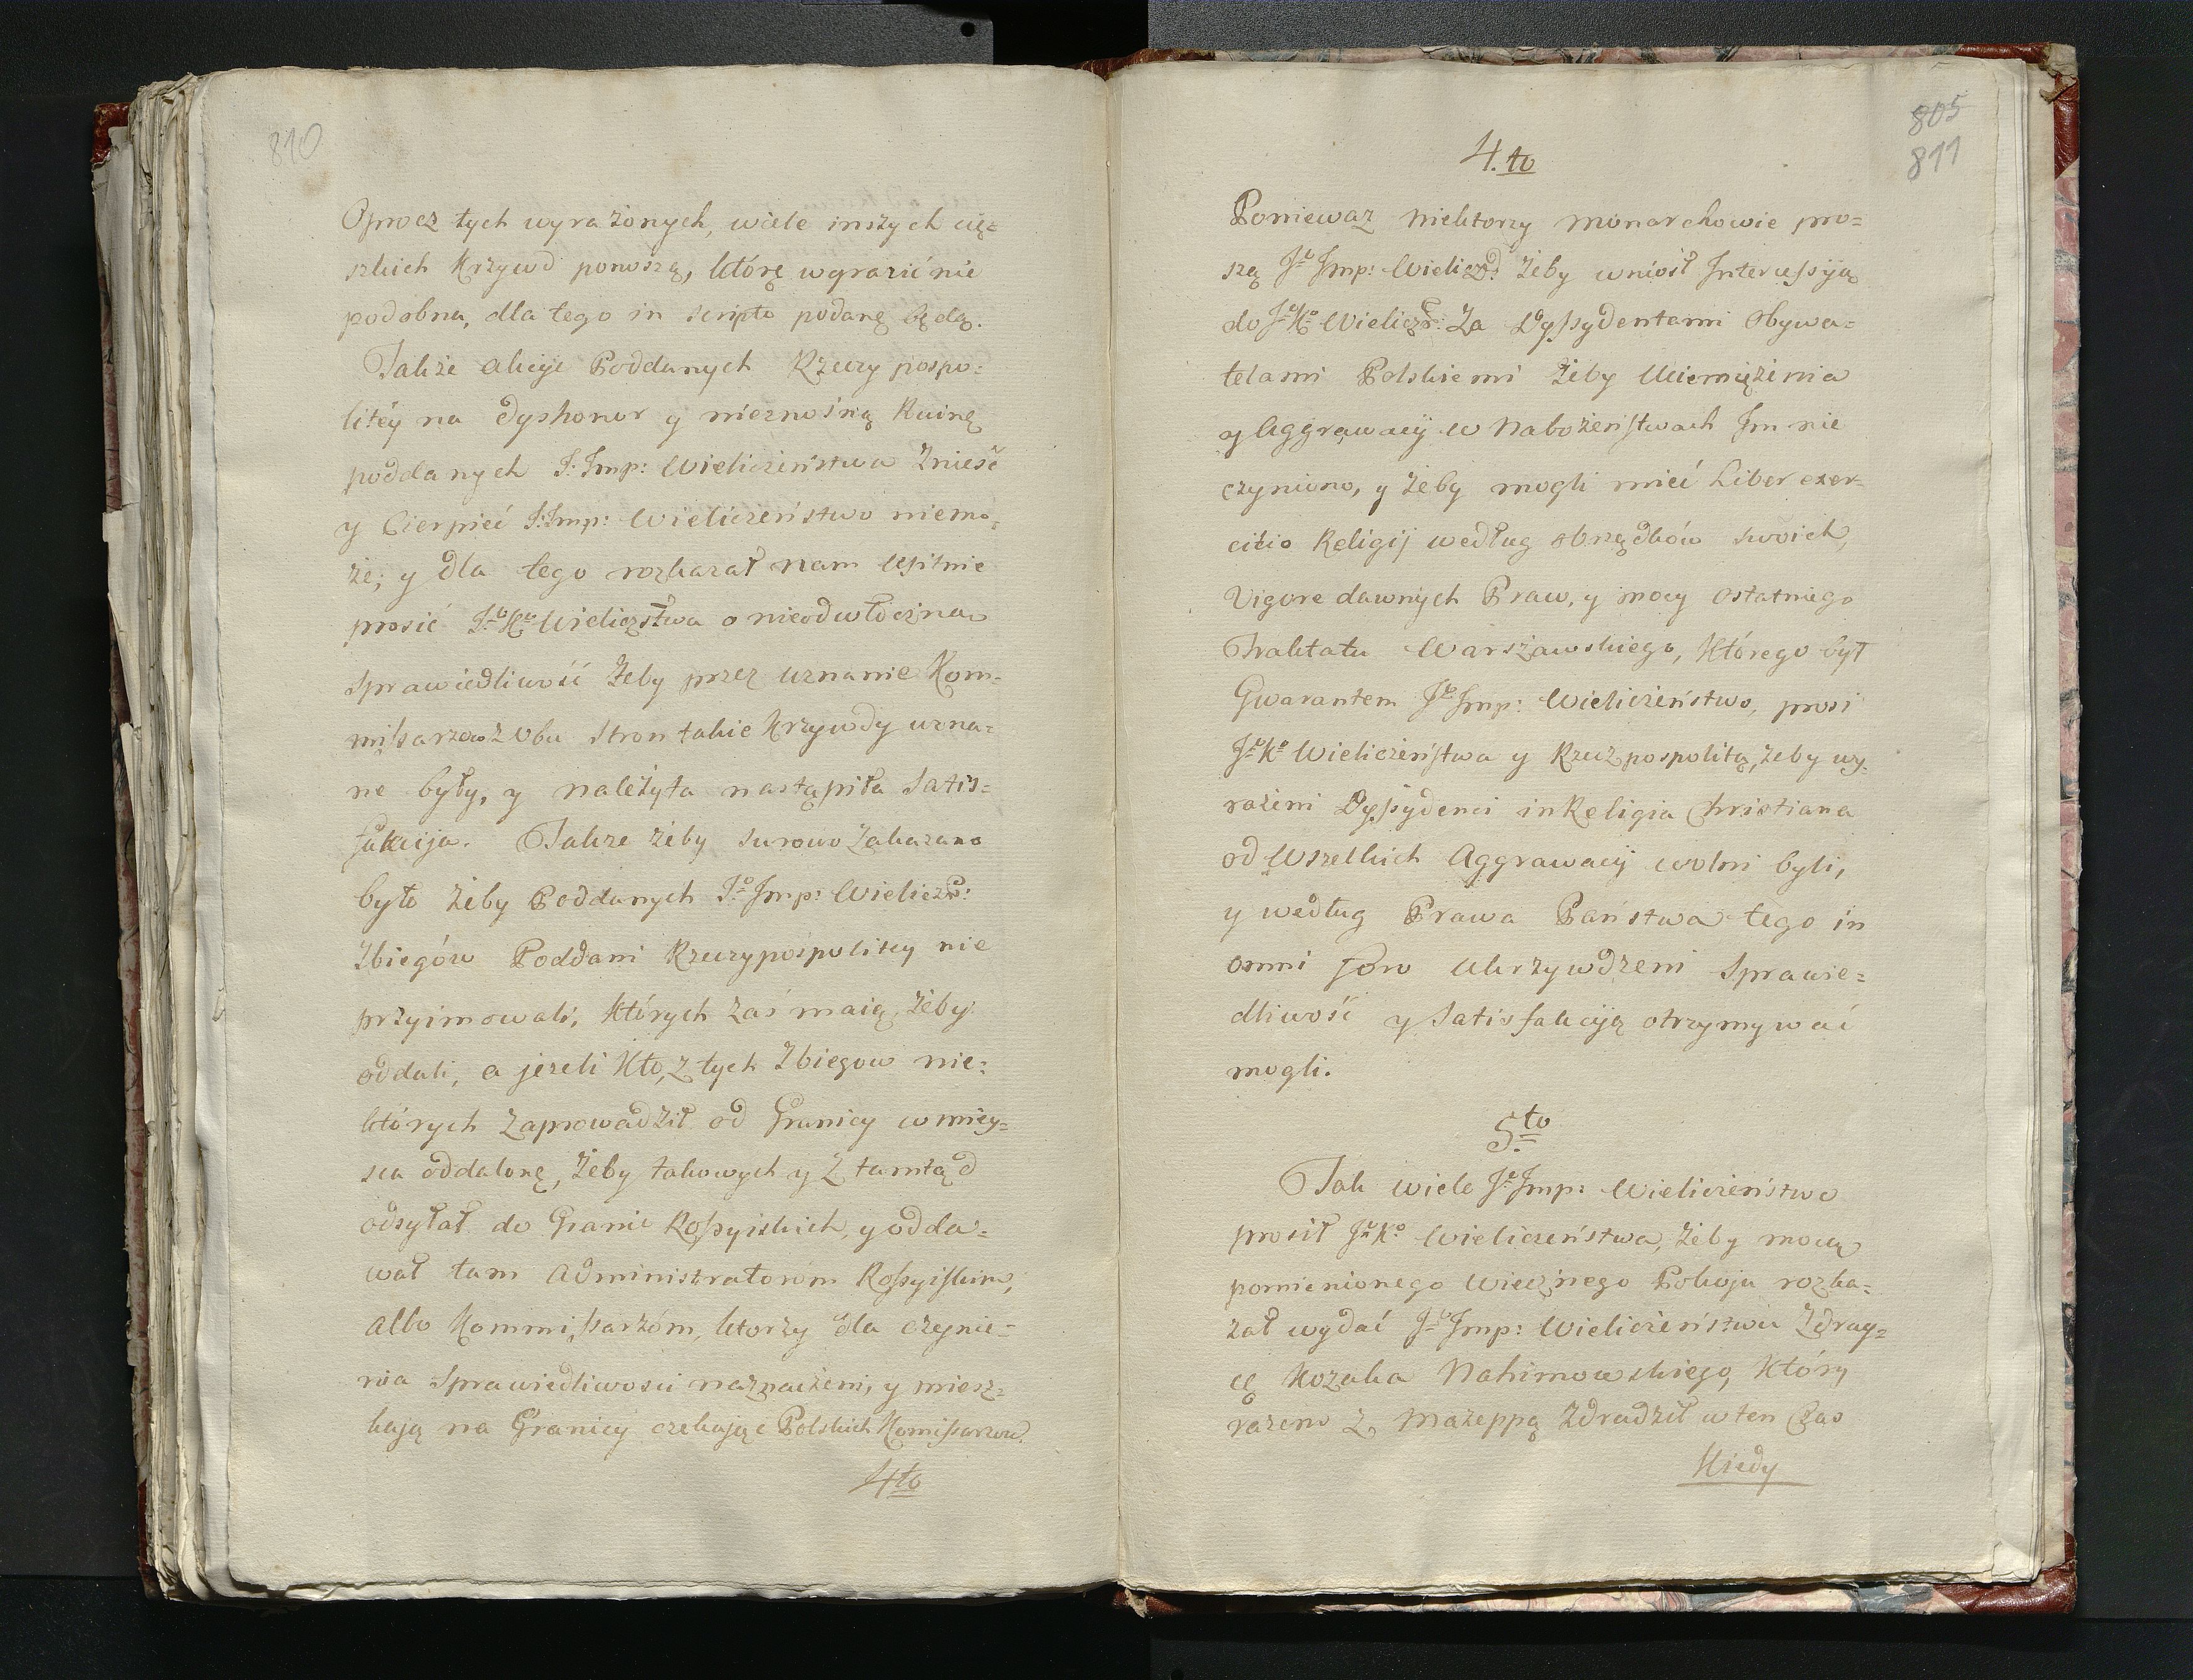 810
Oprocz tych wyrażonych, wiele inszych cię=
szkich Krzywd ponoszą, którę wyrazić nie
podobna, dla tego in scripto podanę będą.
Takze akcyje Poddanych Rzeczy pospo=
litéy na Dyshonor y nieznośną Ruinę
poddanych J: Imp: Wieliczeństwa Znieść
y Cierpieć J: Imp: Wieliczeństwo niemo=
że; y dla tego rozkazał nam usilnie
prosić Jo Ko Wieliczstwa o nieodwłoczna
sprawiedliwość Żeby przez uznanie Kom=
missarzow z Obu Stron takie Krzywdy uzna=
ne były, y należyta nastąpiła Satis=
fakcija. Takze żeby surowo Zakazano
było żeby Poddanych Jo Imp: Wielicz:
Zbiegów Poddani Rzeczypospolitey nie
przyimowali, których zaś maią, żeby
oddali, a jezeli Kto, z tych Zbiegow nie=
których Zaprowadził od Granicy w miey=
sca oddalonę, Żeby takowych y Z tamtąd
odsyłał do Granic Rossyiskich, y odda=
wał tam Administratorom Rossyiskim,
albo Kommissarzóm, ktorzy dla czynie=
nia Sprawiedliwosci naznaczeni, y miesz=
kają na Granicy czekając Polskich Komissarzow.
4to
805
811
4.to
Poniewaz niektorzy monarchowie pro=
szą Jo Imp: Wielicz: żeby wniosł Intercessyją
do Jo Ko Wielicz: Za Dyssydentami Obywa=
telami Polskiemi żeby Uciemiężenia
y Aggrawacij w Nabożeństwach Im nie
czyniono, y żeby mogli mieć Liber exer=
citio Religij według obrzędków swoich,
Vigore dawnych Praw, y mocy ostatniego
Traktatu Warszawskiego, Którego był
Gwarantem Jo Imp: Wieliczeństwo, prosi
Jo Ko Wieliczeństwa y Rzeczpospolitą, żeby wy=
rażeni Dyssydenci in Religia Christiana
od Wszelkich Aggrawacij wolni byli,
y według Prawa Państwa tego in
omni foro Ukrzywdzeni Sprawie=
dliwość y Satisfakcyją otrzymywać
mogli.
5to
Jak wiele Jo Imp: Wieliczeństwo
prosił Jo Ko Wieliczeństwa, Żeby mocą
pomienionego Wiecznego Pokoju rozka=
zał wydać Jo Imp: Wieliczeństwu Zdray=
cę Kozaka Nahimowskiego, Który
razem Z Mazeppą Zdradził w ten Czas
Kiedy